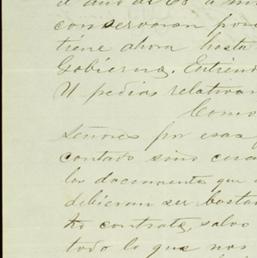 el año de 68 a
conservaran
tiene ahora hasta
Gobierno. Entiend
U pedia relativa
Como
Señores por esas
contado sino
los documentos que
debieran ser bastan
contrata, salvo
todo lo que nos